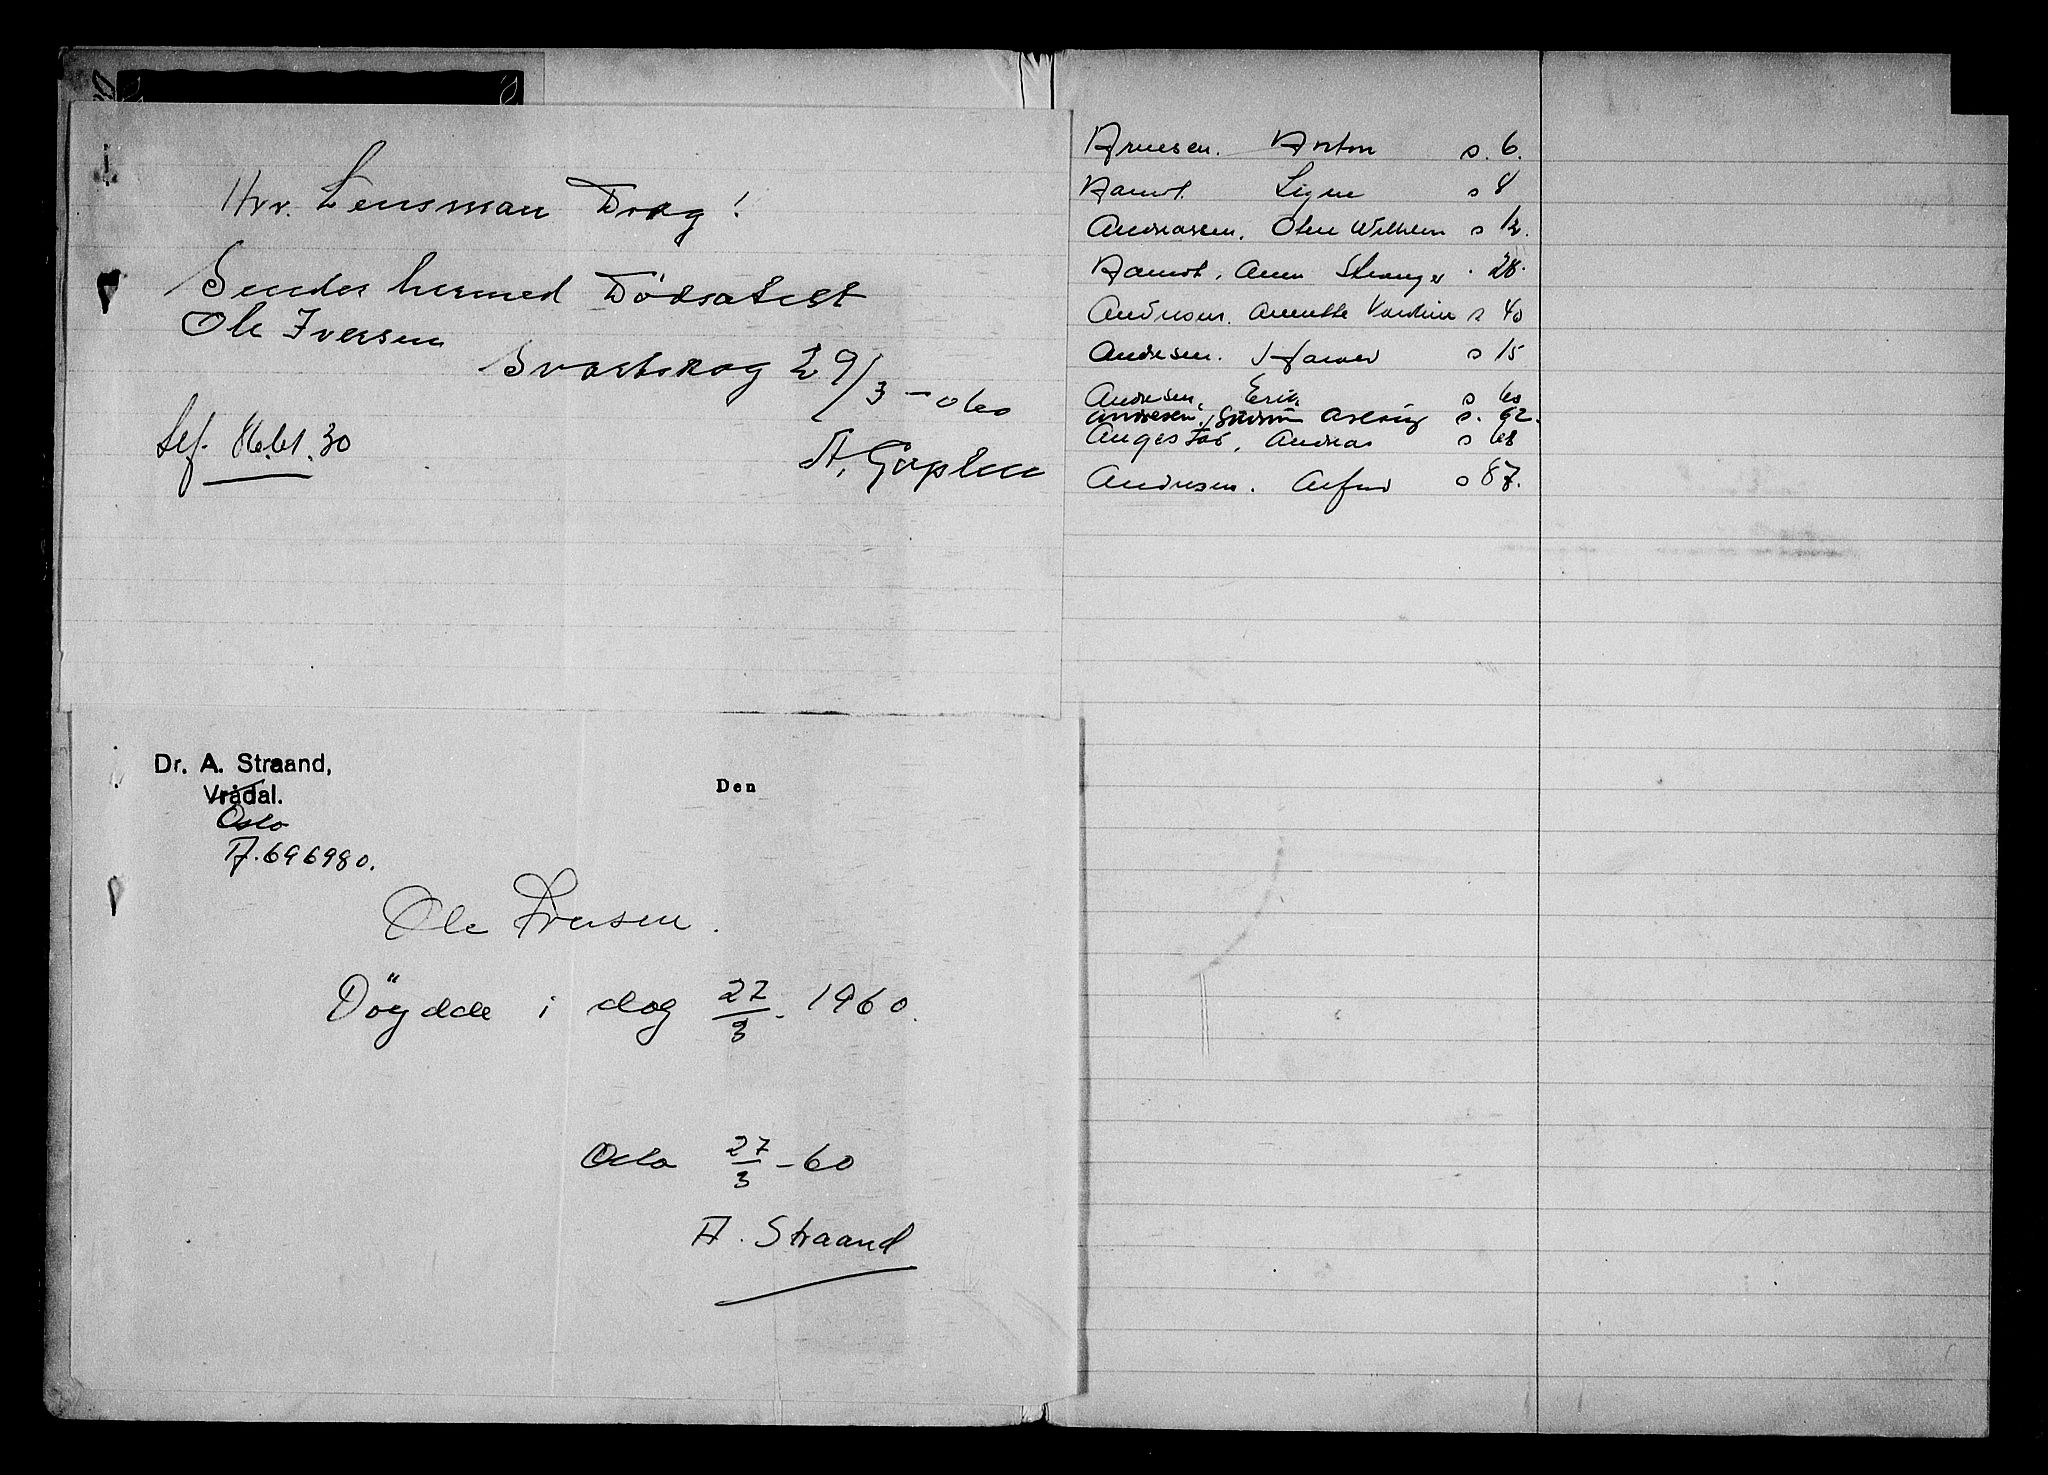 Hrr. Lensman Drag!
Sender hermed Dødsatest
Ole Iversen
Svartskog 29/3 - 60
Tlf. 30
A.
Dr. A. Straand,
Vrådal.
Den
Oslo
T. 696980.
Ole Iversen.
Döydde i dag 27/3. 1960.
Oslo 27/3 - 60
A. Straand
Arnesen. Anton s. 6.
Aamot. Signe s 8
Andreasen. Olm Wilhelm s 12.
Aamot. Anna 28.
Andresen. Annette s 40
Andresen. s 15
Andresen. Erik s 60
Andresen, Gudrun Aslaug s. 92.
Angestad, Andreas s 68
Andresen. Alfred s 87.